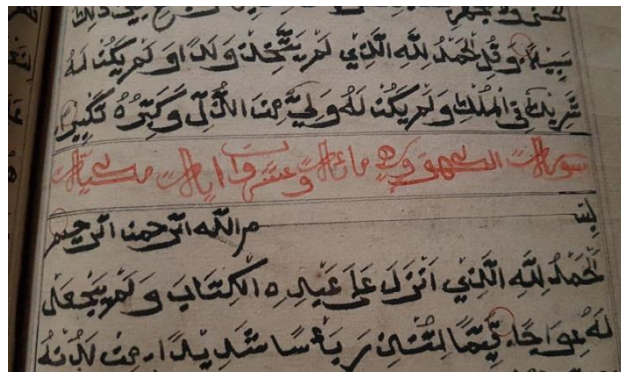 سَبِيلاً وَقُلِ الْحَمْدُ لِلَّهِ الَّذِي لَمْ يَتَّخِذْ وَلَدًا وَلَمْ يَكُنْ لَهُ
شَرِيكٌ فِي الْمُلْكِ وَلَمْ يَكُنْ لَهُ وَلِيٌّ مِنَ الذُّلِّ وَكَبِّرْهُ تَكْبِيرًا
سورة الكهف وهي مائة وعشر آيات مكيات
بسم الله الرحمن الرحيم
الْحَمْدُ لِلَّهِ الَّذِي أَنْزَلَ عَلَى عَبْدِهِ الْكِتَابَ وَلَمْ يَجْعَلْ
لَهُ عِوَاجًا قَيِّمًا لِيُنْذِرَ بَأْسًا شَدِيدًا مِنْ لَدُنْهُ